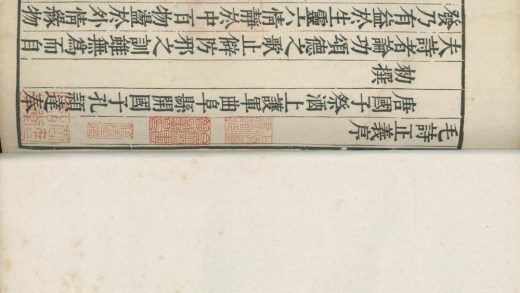 毛詩正義序
唐國子祭酒上護軍曲阜縣開國子孔穎達奉
勑撰
夫詩者論功頌德之歌止僻防邪之訓雖無為而自
發乃有益於生靈六情靜於中百物盪於外情緣物